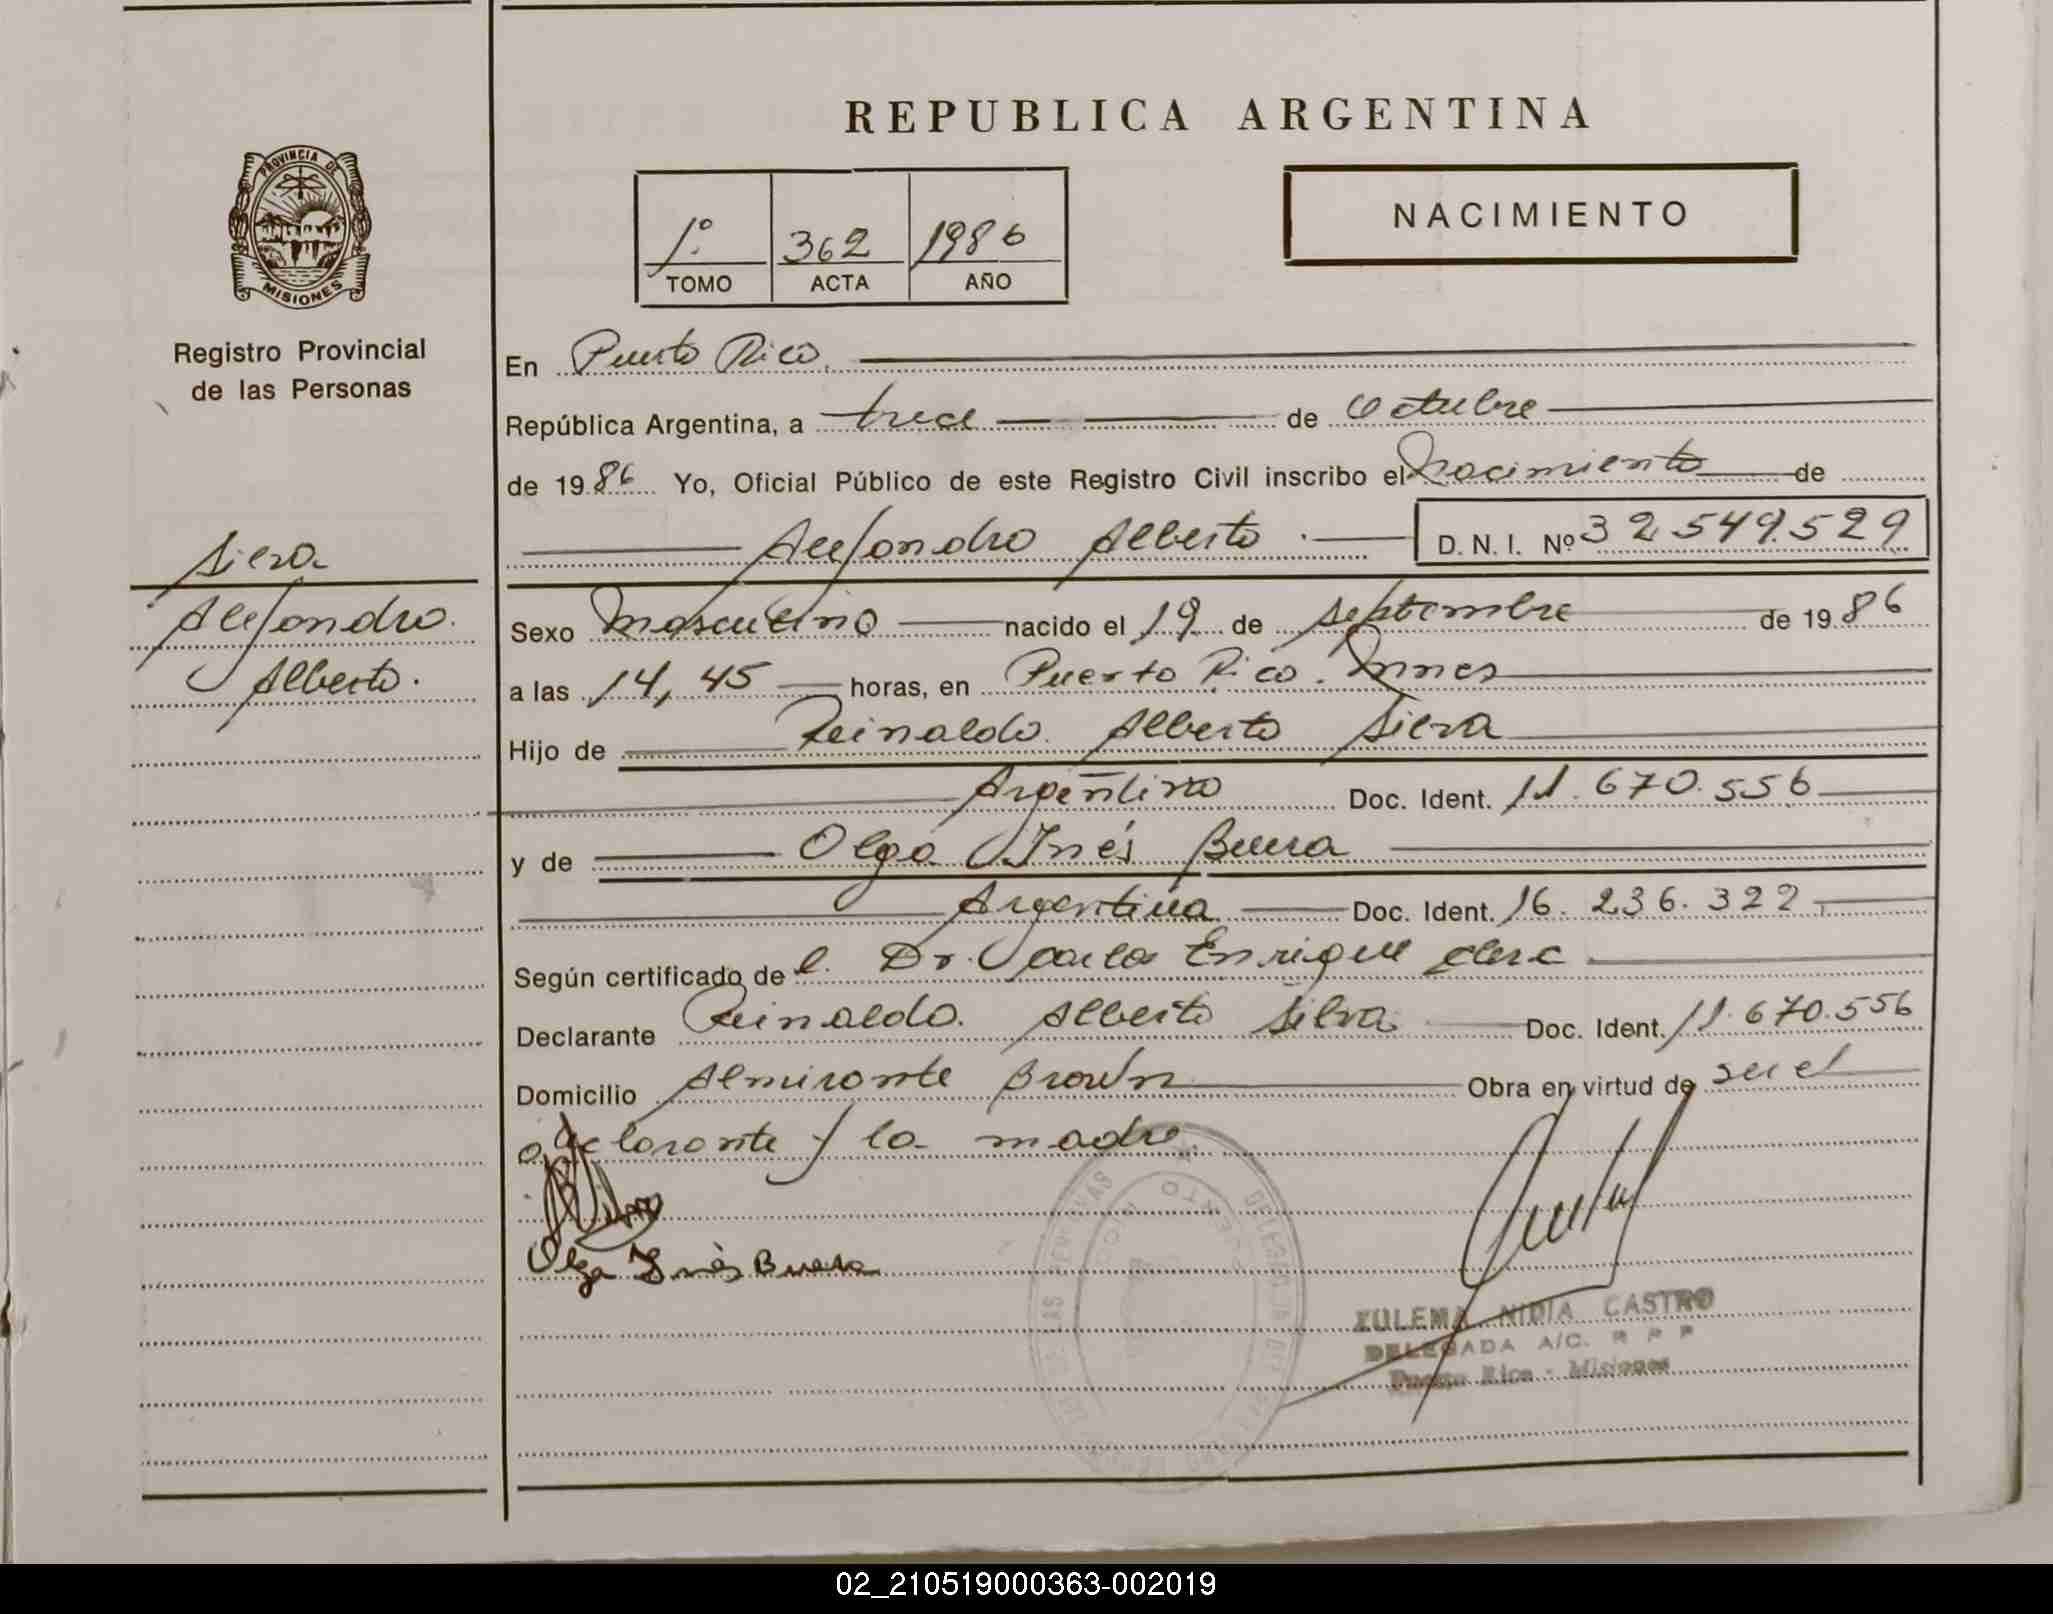 PROVINCIA DE
MISIONES
Registro Provincial
de las Personas
Silva
Alejandro
Alberto.
REPUBLICA ARGENTINA
1º 362 1986
TOMO ACTA AÑO
NACIMIENTO
En Puerto Rico,
República Argentina, a trece de Octubre
de 1986 Yo, Oficial Público de este Registro Civil inscribo el Nacimiento de
Alejandro Alberto. D. N. I. Nº 32.549.529
Sexo Masculino nacido el 19 de septiembre de 1986
a las 14,45 horas, en Puerto Rico. Mnes
Hijo de Reinaldo Alberto Silva
Argentino Doc. Ident. 11.670.556
y de Olga Inés Buera
Argentina Doc. Ident. 16.236.322
Según certificado de l. Dr. Carlos Enrique
Declarante Reinaldo Alberto Silva Doc. Ident. 11.670.556
Domicilio Almirante Brown Obra en virtud de ser el
declarante y la madre
Olga Inés Buera
ZULEMA NIDIA CASTRO
DELEGADA A/C. R P P
Puerto Rico - Misiones
02_210519000363-002019